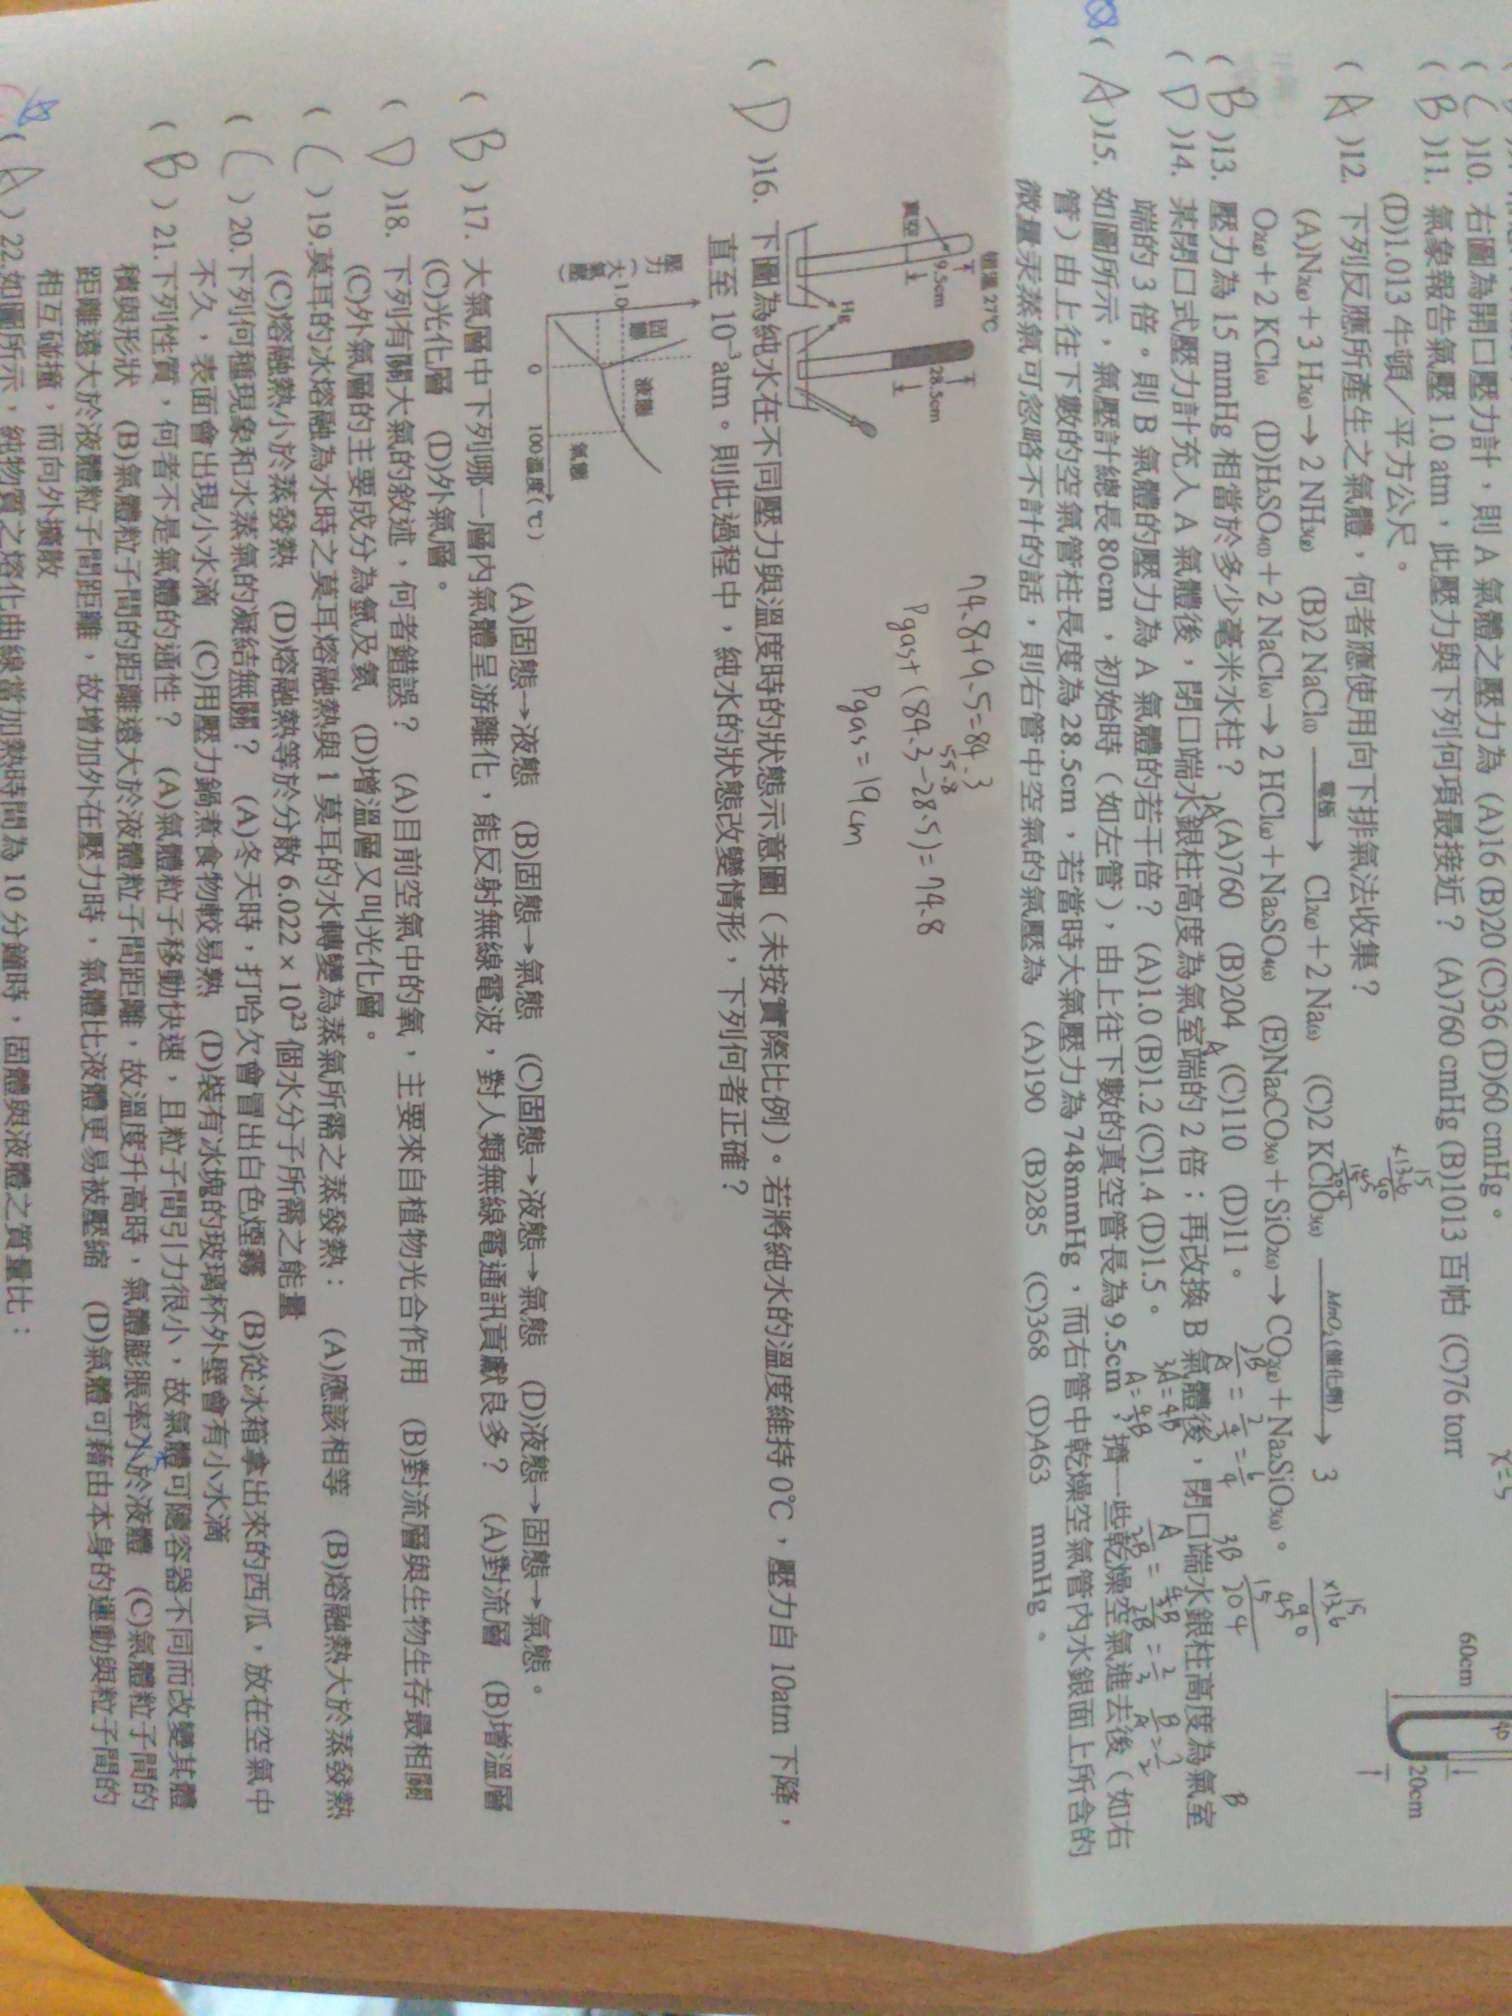 ( C )10. 右圖為開口壓力計，則 A 氣體之壓力為 (A)16 (B)20 (C)36 (D)60 cmHg。
( B )11. 氣象報告氣壓 1.0 atm，此壓力與下列何項最接近？ (A)760 cmHg (B)1013 百帕 (C)76 torr
(D)1.013 牛頓／平方公尺。
x=5
60cm
20cm
( A )12. 下列反應所產生之氣體，何者應使用向下排氣法收集？
(A)N₂(g) + 3 H₂(g) → 2 NH₃(g) (B)2 NaCl(l) 電極→ Cl₂(g) + 2 Na(s) (C)2 KClO₃(s) MnO₂(催化劑)→ 3
O₂(g) + 2 KCl(s) (D)H₂SO₄(l) + 2 NaCl(s) → 2 HCl(g) + Na₂SO₄(s) (E)Na₂CO₃(s) + SiO₂(s) → CO₂(g) + Na₂SiO₃(s)。
( B )13. 壓力為 15 mmHg 相當於多少毫米水柱？ (A)760 (B)204 (C)110 (D)11。
( D )14. 某閉口式壓力計充入 A 氣體後，閉口端水銀柱高度為氣室端的 2 倍；再改換 B 氣體後，閉口端水銀柱高度為氣室
端的 3 倍。則 B 氣體的壓力為 A 氣體的若干倍？ (A)1.0 (B)1.2 (C)1.4 (D)1.5。
3A=4B
( A )15. 如圖所示，氣壓計總長 80cm，初始時（如左管），由上往下數的真空管長為 9.5cm，擠一些乾燥空氣進去後（如右
管）由上往下數的空氣管柱長度為 28.5cm，若當時大氣壓力為 748mmHg，而右管中乾燥空氣管內水銀面上所含的
微量汞蒸氣可忽略不計的話，則右管中空氣的氣壓為 (A)190 (B)285 (C)368 (D)463 mmHg。
恆溫 27℃
真空
9.5cm
Hg
28.5cm
74.8+9.5=84.3
55.8
Pgas+(84.3-28.5)=74.8
Pgas=19cm
( D )16. 下圖為純水在不同壓力與溫度時的狀態示意圖（未按實際比例）。若將純水的溫度維持 0℃，壓力自 10atm 下降，
直至 10⁻³ atm。則此過程中，純水的狀態改變情形，下列何者正確？
壓力（大氣壓）
1.0
固態
液態
氣態
0
100 溫度(℃)
(A)固態→液態 (B)固態→氣態 (C)固態→液態→氣態 (D)液態→固態→氣態。
( B )17. 大氣層中下列哪一層內氣體呈游離化，能反射無線電波，對人類無線電通訊貢獻良多？ (A)對流層 (B)增溫層
(C)光化層 (D)外氣層。
( D )18. 下列有關大氣的敘述，何者錯誤？ (A)目前空氣中的氧，主要來自植物光合作用 (B)對流層與生物生存最相關
(C)外氣層的主要成分為氫及氦 (D)增溫層又叫光化層。
( C )19.莫耳的冰熔融為水時之莫耳熔融熱與 1 莫耳的水轉變為蒸氣所需之蒸發熱： (A)應該相等 (B)熔融熱大於蒸發熱
(C)熔融熱小於蒸發熱 (D)熔融熱等於分散 6.022 × 10²³ 個水分子所需之能量
( C )20.下列何種現象和水蒸氣的凝結無關？ (A)冬天時，打哈欠會冒出白色煙霧 (B)從冰箱拿出來的西瓜，放在空氣中
不久，表面會出現小水滴 (C)用壓力鍋煮食物較易熟 (D)裝有冰塊的玻璃杯外壁會有小水滴
( B )21.下列性質，何者不是氣體的通性？ (A)氣體粒子移動快速，且粒子間引力很小，故氣體可隨容器不同而改變其體
積與形狀 (B)氣體粒子間的距離遠大於液體粒子間距離，故溫度升高時，氣體膨脹率小於液體 (C)氣體粒子間的
距離遠大於液體粒子間距離，故增加外在壓力時，氣體比液體更易被壓縮 (D)氣體可藉由本身的運動與粒子間的
相互碰撞，而向外擴散
( A )22.如圖所示，純物質之熔化曲線當加熱時間為 10 分鐘時，固體與液體之質量比：